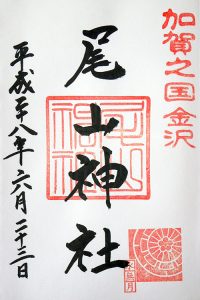 加賀之国金沢
尾山神社
平成二十八年六月二十三日